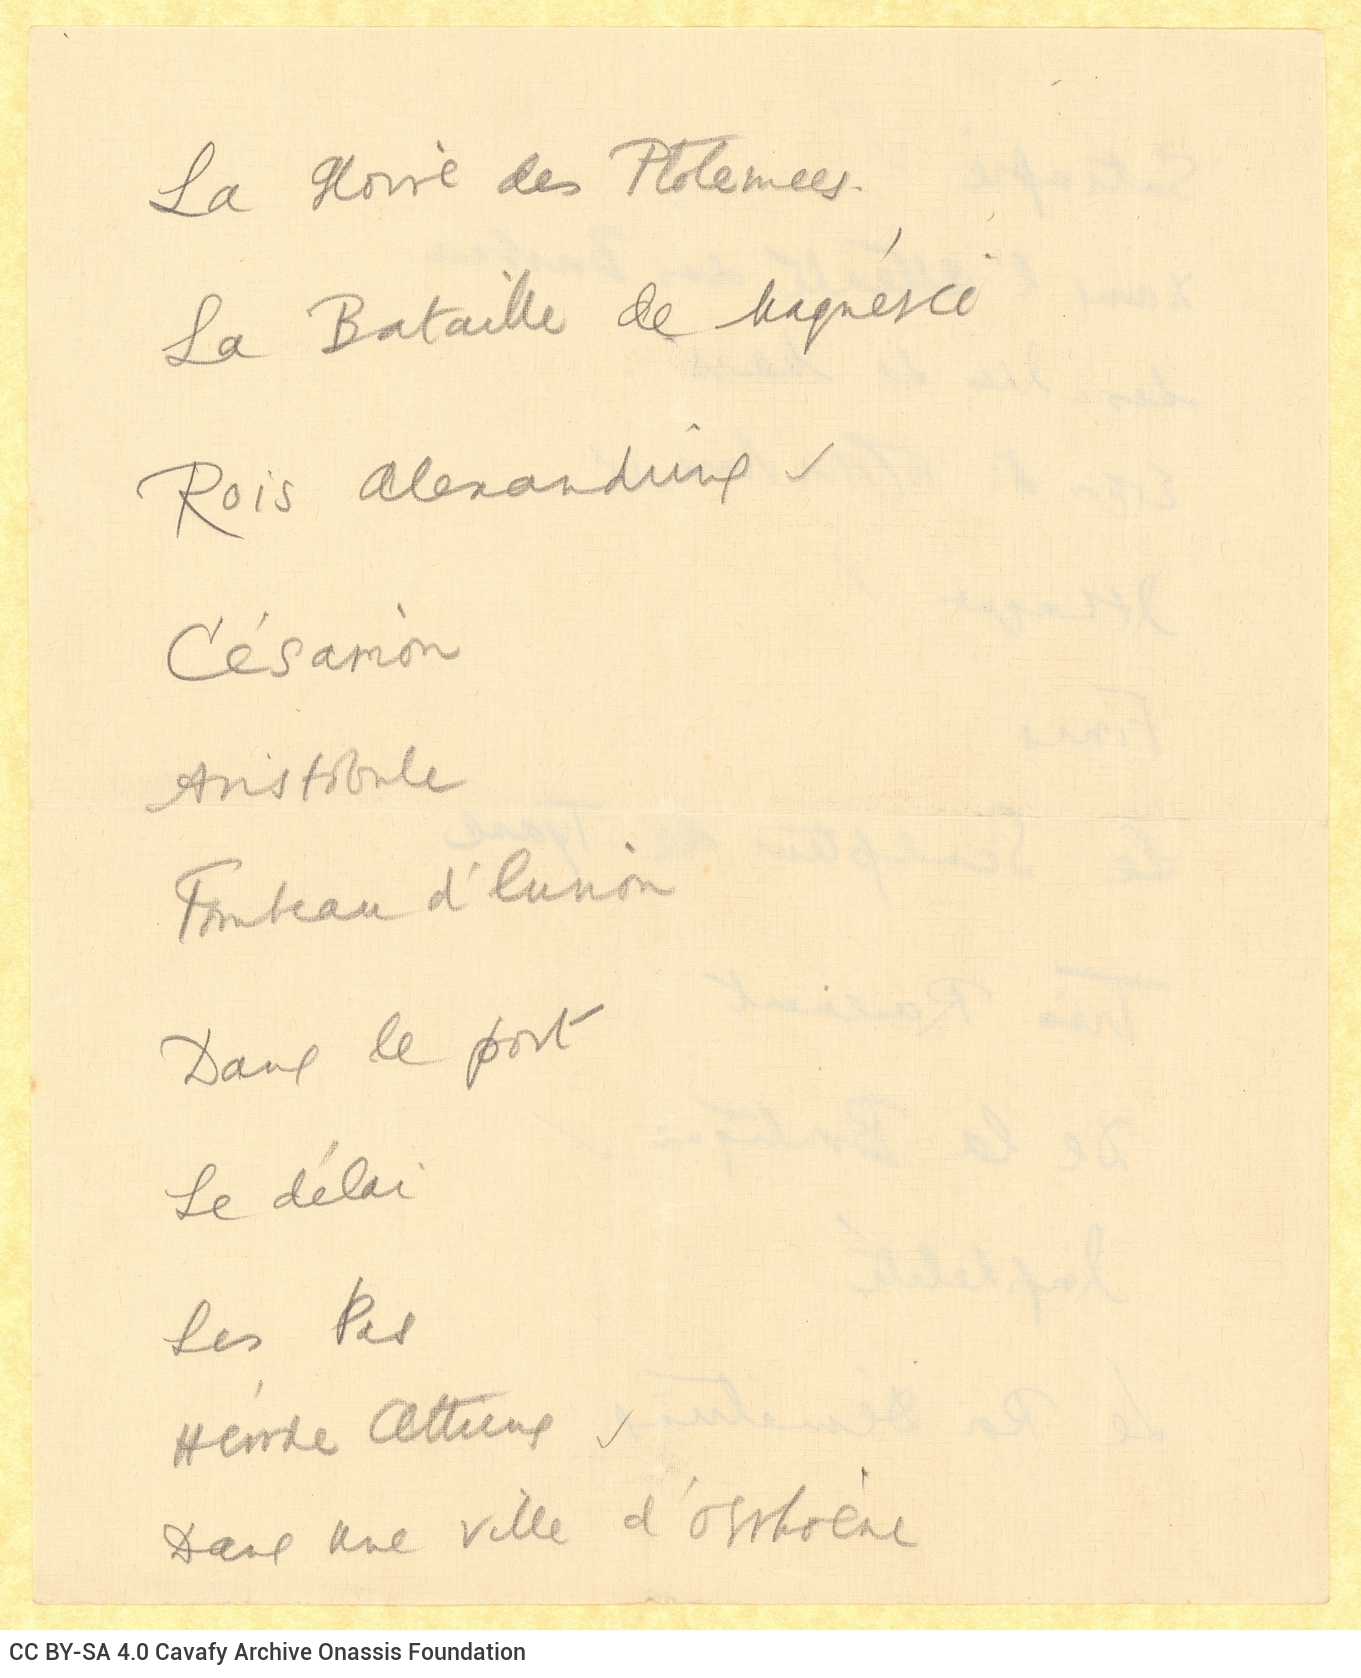 La Gloire des Ptolemees.
La Bataille de Magnésie
Rois Alexandrins ✓
Césarion
Aristobule
Tombeau d'Eurion
Dans le port
Le délai
Les Pas
Hérode Atticus ✓
Dans une ville d'Osrhoène
CC BY-SA 4.0 Cavafy Archive Onassis Foundation